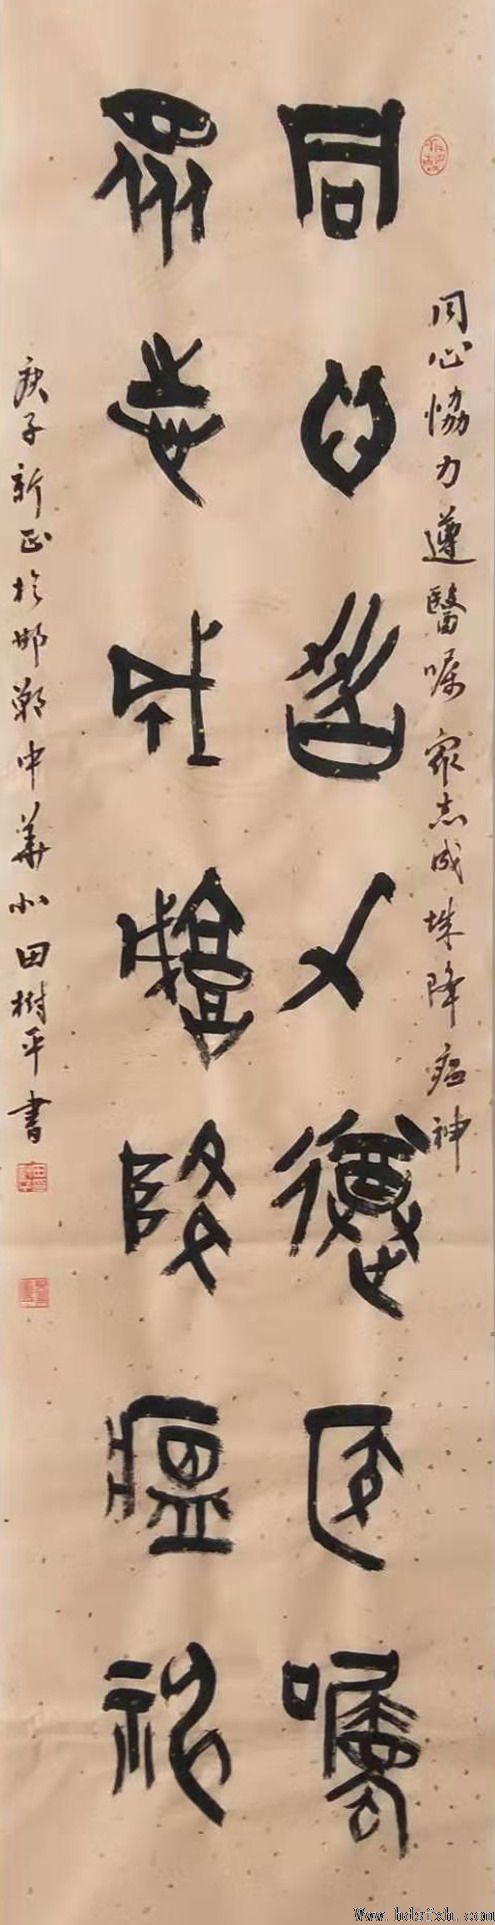 同心協力遵醫嘱眾志成城降瘟神
同心協力遵醫囑
眾志成城降瘟神
庚子新正於邯鄲中華北田樹平書
www.hdsfxh.com